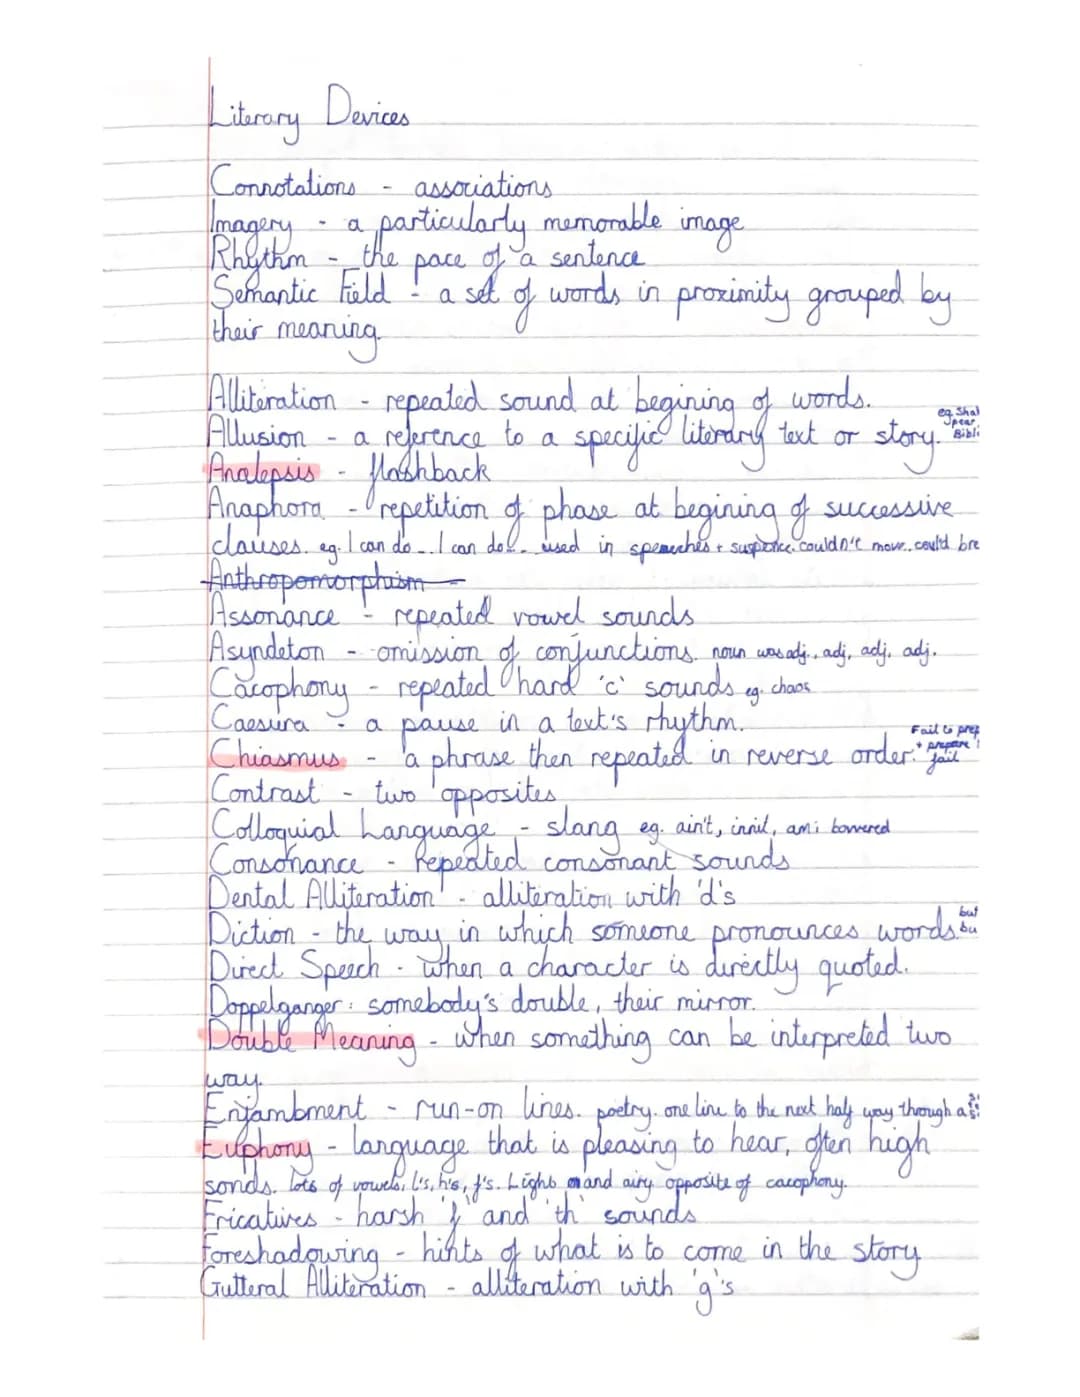 Literary Devices
Connotations - associations
Imagery - a particularly memorable image
Rhythm - the pace of a sentence
Semantic Field - a set of words in proximity grouped by
their meaning.
Alliteration - repeated sound at begining of words.
Allusion - a reference to a specific literary text or story. eg. Shak
pear
Bibli
Analepsis - flashback
Anaphora - repetition of phase at begining of successive
clauses. eg. I can do... I can do... used in
Anthropomorphism
Assonance - repeated vowel sounds
Asyndeton - omission of conjunctions. noun was adj., adj, adj, adj.
Cacophony - repeated hard 'c' sounds eg. chaos
Caesura - a pause in a text's rhythm.
Chiasmus - a phrase then repeated in reverse order. Fail to prep
+ prepare
fail
Contrast - two opposites
Colloquial Language - slang eg. ain't, innit, am i bovvered
Consonance - Repeated consonant sounds
Dental Alliteration - alliteration with 'd's
Diction - the way in which someone pronounces words. but
bu
Direct Speech - When a character is directly quoted.
Doppelganger: somebody's double, their mirror.
Double Meaning - when something can be interpreted two
way.
Enjambment - run-on lines. poetry. one line to the next half way through a
Euphony - language that is pleasing to hear, often high
sonds. lots of vowels, l's, h's, f's. Light and airy opposite of cacophony.
Fricatives - harsh 'f' and 'th' sounds
Foreshadowing - hints of what is to come in the story
Gutteral Alliteration - alliteration with 'g's